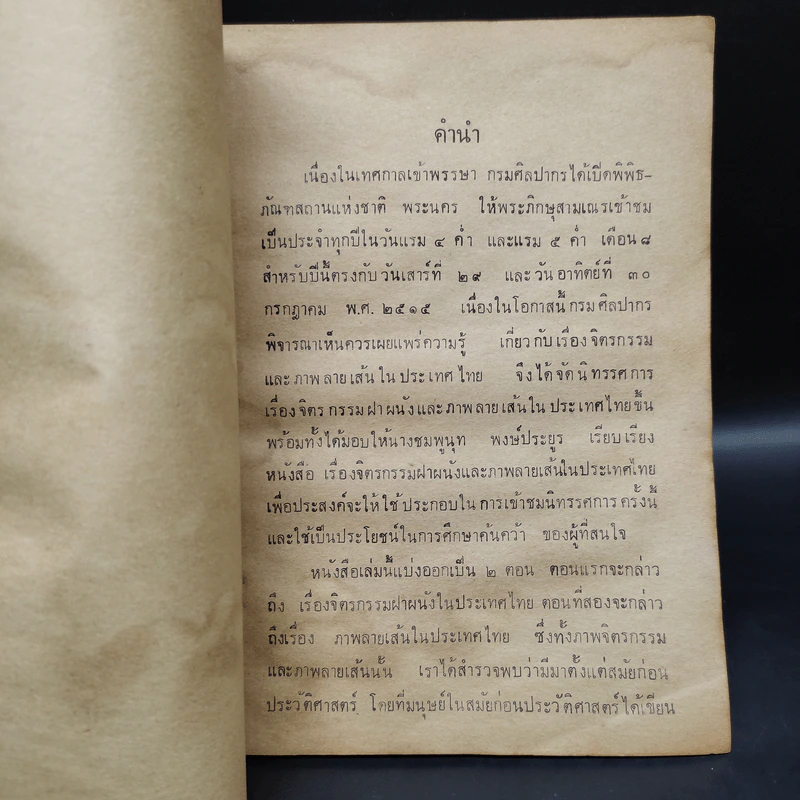 คำนำ
เนื่องในเทศกาลเข้าพรรษา กรมศิลปากรได้เปิดพิพิธ-
ภัณฑสถานแห่งชาติ พระนคร ให้พระภิกษุสามเณรเข้าชม
เป็นประจำทุกปีในวันแรม ๔ ค่ำ และแรม ๕ ค่ำ เดือน ๘
สำหรับปีนี้ตรงกับวันเสาร์ที่ ๒๙ และวันอาทิตย์ที่ ๓๐
กรกฎาคม พ.ศ. ๒๕๑๕ เนื่องในโอกาสนี้กรมศิลปากร
พิจารณาเห็นควรเผยแพร่ความรู้ เกี่ยวกับเรื่องจิตรกรรม
และภาพลายเส้นในประเทศไทย จึงได้จัดนิทรรศการ
เรื่องจิตรกรรมฝาผนังและภาพลายเส้นในประเทศไทยขึ้น
พร้อมทั้งได้มอบให้นางชมพูนุท พงษ์ประยูร เรียบเรียง
หนังสือ เรื่องจิตรกรรมฝาผนังและภาพลายเส้นในประเทศไทย
เพื่อประสงค์จะให้ใช้ประกอบในการเข้าชมนิทรรศการครั้งนี้
และใช้เป็นประโยชน์ในการศึกษาค้นคว้า ของผู้ที่สนใจ
หนังสือเล่มนี้แบ่งออกเป็น ๒ ตอน ตอนแรกจะกล่าว
ถึง เรื่องจิตรกรรมฝาผนังในประเทศไทย ตอนที่สองจะกล่าว
ถึงเรื่อง ภาพลายเส้นในประเทศไทย ซึ่งทั้งภาพจิตรกรรม
และภาพลายเส้นนั้น เราได้สำรวจพบว่ามีมาตั้งแต่สมัยก่อน
ประวัติศาสตร์ โดยที่มนุษย์ในสมัยก่อนประวัติศาสตร์ได้เขียน